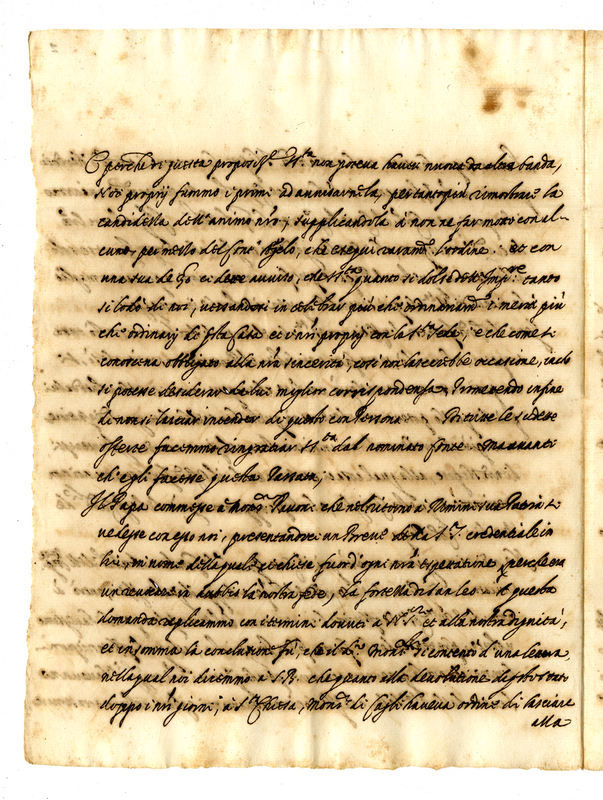 E perche di questa proposit.e S. S.tà non poteua hauer nuoua da altra banda,
Noi proprij fummo i primi ad auuisarnela, per tanto più dimostrare la
candidezza dell'animo nr̃o, supplicandola à non ne far motto con al-
cuno, per mezzo del Conte Agelo, che eseguì raram.te l'ordine. et con
una sua de ci dete auuiso, che S. S.tà quanto si dolse dell' tanto
si lodò di noi, uersandosi in celebrar più che ordinariam.te i meriti più
che ordinarij di q̃sta Casa et i nr̃i proprij con la S.ta Sede, e che come si
conosceua obligato alla nr̃a sincerità, così non lascerebbe occasione, in che
si potesse desiderar da lui miglior corrispondenza, Promettendo infine
di non si lasciar intender di questo con Persona. Per tutte le sudette
offerte facemmo ringratiar S. S.tà dal nominato Conte. Ma auanti
ch'egli facesse questa
Il Papa commesse à Mons.r Pauoni che nel ritorno à Rimini sua Patria si
uedesse con esso noi, presentandoci un Breue della S. S. credentiale in
lui, in nome della quale ci chiese fuor d'ogni nr̃a espettatione, perche era
un reuocare in dubbio la nostra fede, la fortezza di San leo. A questa
domanda replicammo con i termini douuti a N. S.re et alla nostra dignità,
et in somma la conclusione fù, che il d.o Mons.re si contentò d'una lettera,
nella qual noi dicemmo a S. B. che quanto alla deuolutione di q̃sto stato
doppo i nr̃i giorni, a S.ta Chiesa, Mons.r di Cagli haueua ordine di lasciare
alla